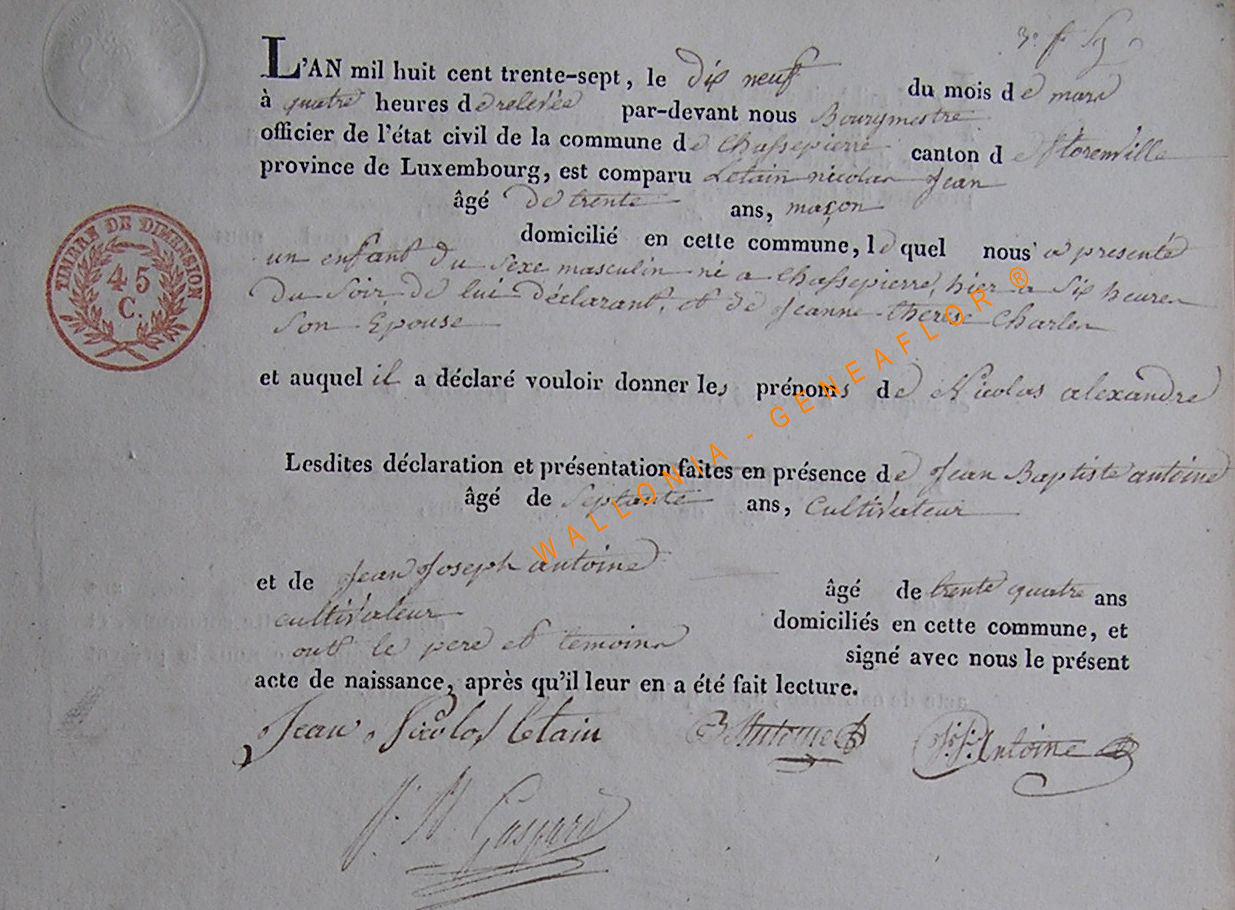 L'AN mil huit cent trente-sept, le dix neuf du mois de mars
à quatre heures de relevée par-devant nous Bourgmestre
officier de l'état civil de la commune de Chassepierre canton de florenville
province de Luxembourg, est comparu Letain nicolas Jean
âgé de trente ans, maçon
domicilié en cette commune, le quel nous a presenté
un enfant du sexe masculin né a Chassepierre, hier a six heures
du soir, de lui déclarant, et de Jeanne therese Charles
son Epouse
et auquel il a déclaré vouloir donner les prénoms de Nicolas alexandre
Lesdites déclaration et présentation faites en présence de Jean Baptiste antoine
âgé de septante ans, Cultivateur
et de Jean Joseph antoine âgé de trente quatre ans
cultivateur domiciliés en cette commune, et
ont le pere et temoins signé avec nous le présent
acte de naissance, après qu'il leur en a été fait lecture.
Jean Nicolas letain JB Antoine J:J: Antoine
J. N. Gaspard
TIMBRE DE DIMENSION
45
C.
WALLONIA - GENEAFLOR ®